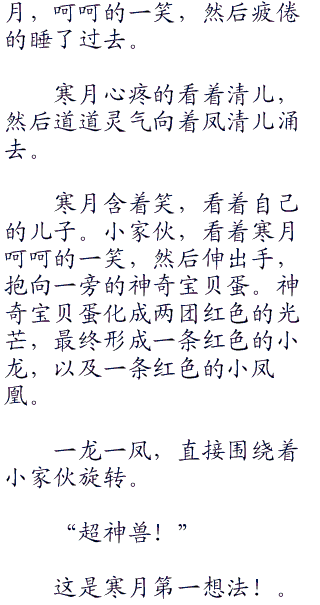 月，呵呵的一笑，然后疲倦
的睡了过去。
寒月心疼的看着清儿，
然后道道灵气向着凤清儿涌
去。
寒月含着笑，看着自己
的儿子。小家伙，看着寒月
呵呵的一笑，然后伸出手，
抱向一旁的神奇宝贝蛋。神
奇宝贝蛋化成两团红色的光
芒，最终形成一条红色的小
龙，以及一条红色的小凤
凰。
一龙一凤，直接围绕着
小家伙旋转。
“超神兽！”
这是寒月第一想法！。